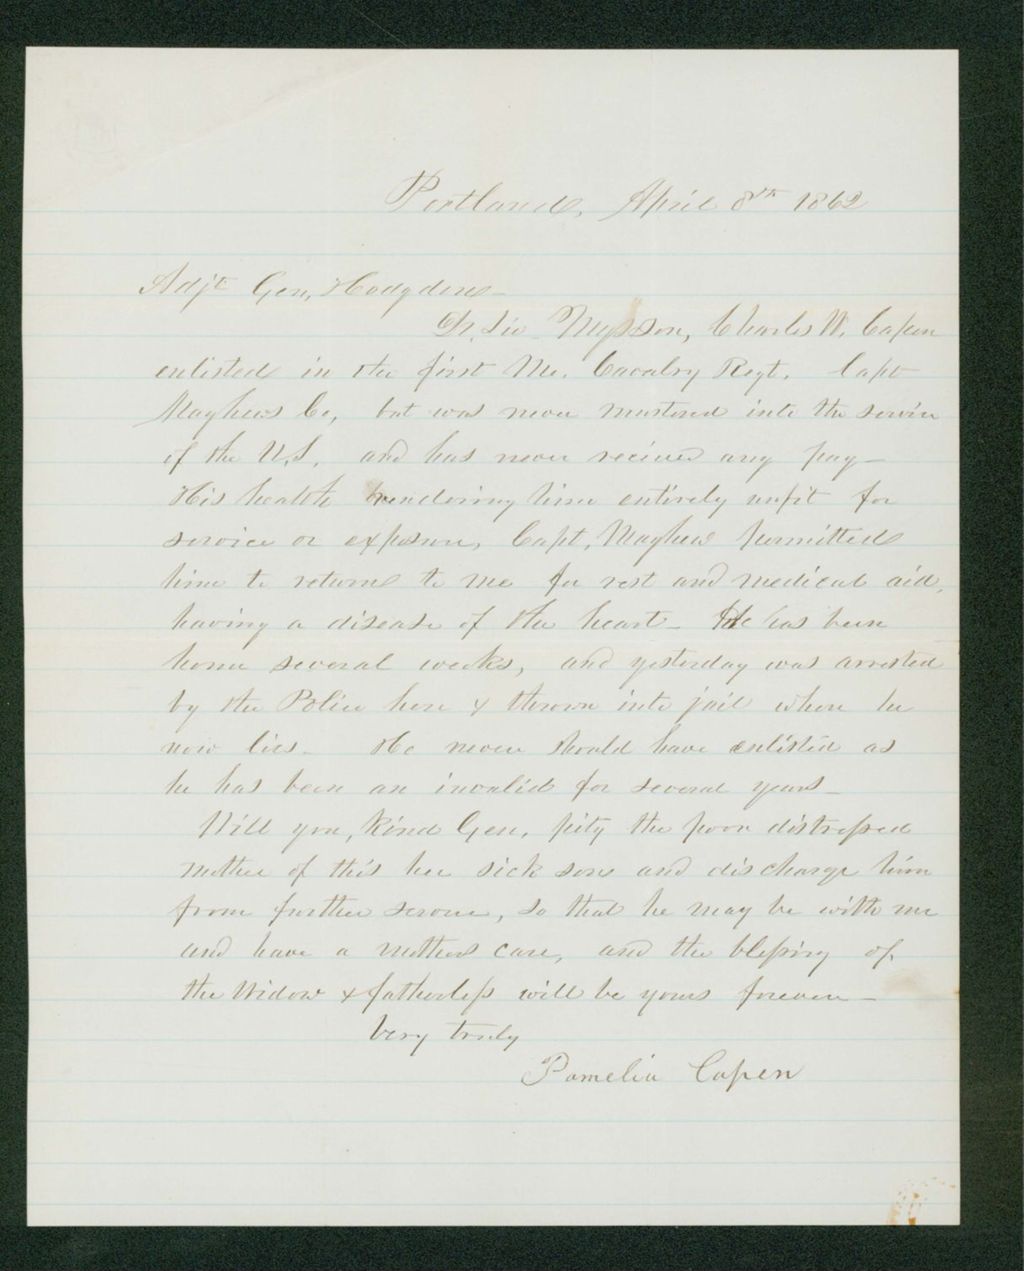 Portland, April 8th 1862
Adjt Gen, Hodgdon -
Dr. Sir My son, Charles W. Capen
enlisted in the first Me. Cavalry Regt. Capt
Mayhews Co, but was never mustered into the service
of the U.S. and has never received any pay -
His health rendering him entirely unfit for
service or exposure, Capt, Mayhew permitted
him to return to me for rest and medical aid,
having a disease of the heart - He has been
home several weeks, and yesterday was arrested
by the Police here & thrown into jail where he
now lies - He never should have enlisted as
he has been an invalid for several years -
Will you, kind Gen, pity the poor distressed
mother of this her sick son and discharge him
from further service, so that he may be with me
and have a mothers care, and the blessing of
the Widow & fatherless will be yours forever -
Very truly
Pamelia Capen